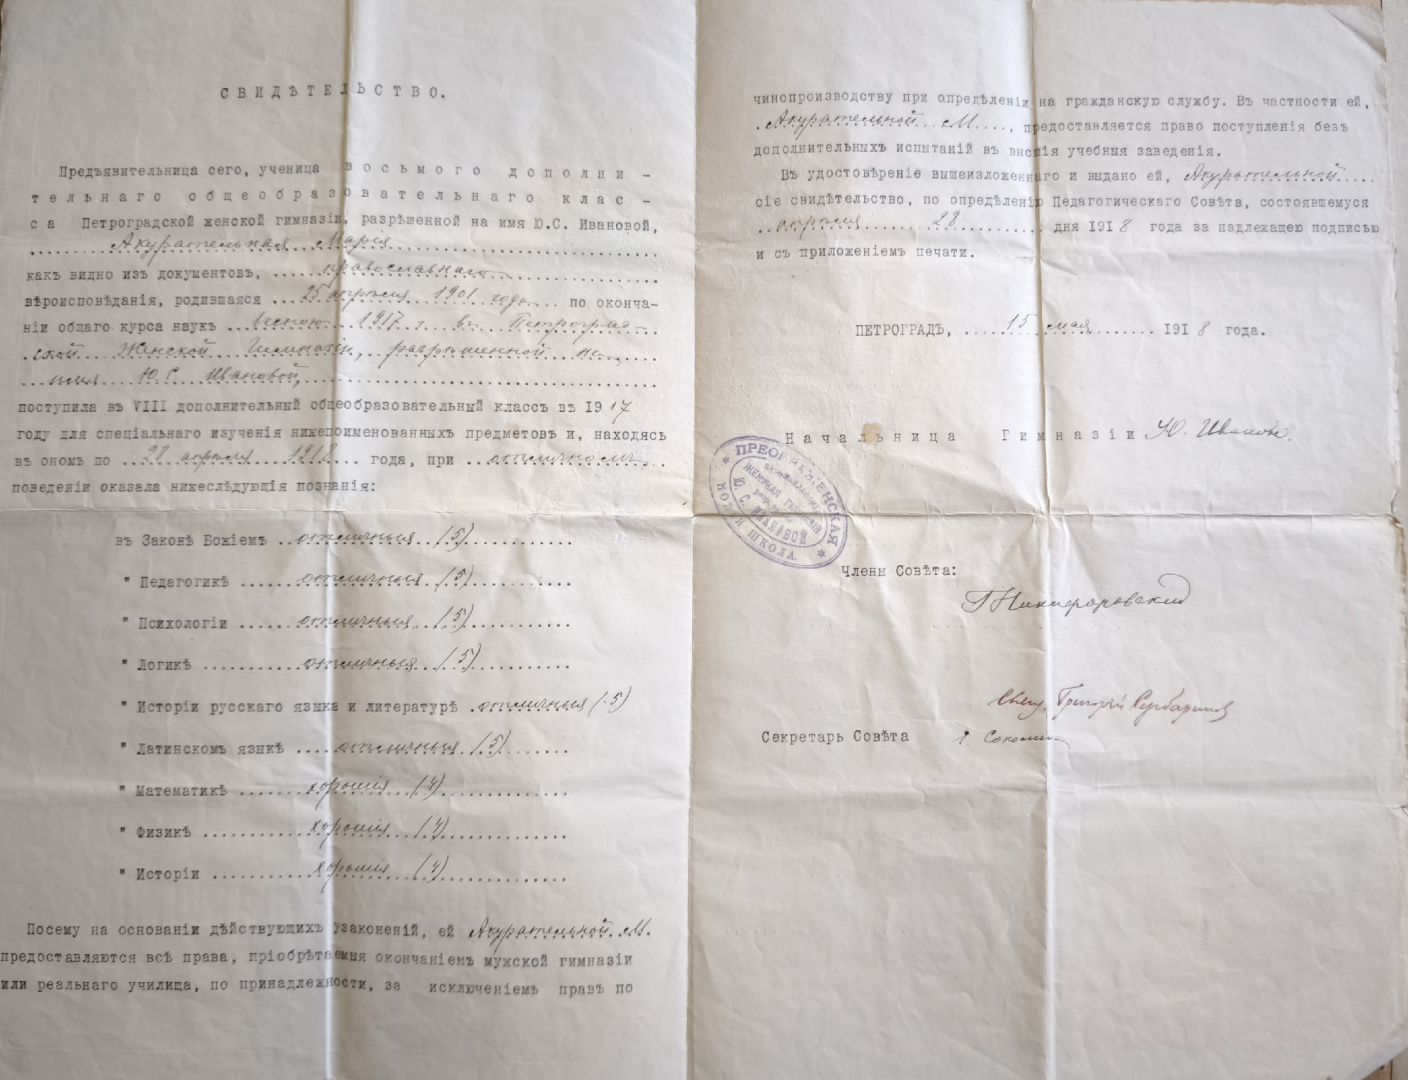 СВИДѢТЕЛЬСТВО.
Предъявительница сего, ученица восьмого дополни -
тельнаго общеобразовательнаго клас -
са Петроградской женской гимназіи, разрѣшенной на имя Ю.С. Ивановой,
Акурательная Марія
какъ видно изъ документовъ, православнаго
вѣроисповѣданія, родившаяся 25 апрѣля 1901 года по оконча-
ніи общаго курса наукъ весною 1917 г. въ Петроград-
ской Женской Гимназіи, разрѣшенной на
имя Ю. С. Ивановой,
поступила въ VIII дополнительный общеобразовательный классъ въ 1917
году для спеціальнаго изученія нижепоименованныхъ предметовъ и, находясь
въ ономъ по 28 апрѣля 1918 года, при отличномъ
поведеніи оказала нижеслѣдующія познанія:
въ Законѣ Божіемъ отличныя (5)
" Педагогикѣ отличныя (5)
" Психологіи отличныя (5)
" Логикѣ отличныя (5)
" Исторіи русскаго языка и литературѣ отличныя (5)
" Латинскомъ языкѣ отличныя (5)
" Математикѣ хорошія (4)
" Физикѣ хорошія (4)
" Исторіи хорошія (4)
Посему на основаніи дѣйствующихъ узаконеній, ей Акуратальной М.
предоставляются всѣ права, пріобрѣтаемыя окончаніемъ мужской гимназіи
или реальнаго училища, по принадлежности, за исключеніемъ правъ по
чинопроизводству при опредѣленіи на гражданскую службу. Въ частности ей,
Акуратальной М., предоставляется право поступленія безъ
дополнительныхъ испытаній въ высшія учебныя заведенія.
Въ удостовѣреніе вышеизложеннаго и выдано ей, Акуратальной
сіе свидѣтельство, по опредѣленію Педагогическаго Совѣта, состоявшемуся
апрѣля 28 дня 1918 года за надлежащею подписью
и съ приложеніемъ печати.
ПЕТРОГРАДЪ, 15 мая 1918 года.
Начальница Гимназіи Ю. Иванова.
ПРЕОБРАЖЕНСКАЯ
НОВАЯ ШКОЛА.
ЖЕНСКАЯ ГИМНАЗІЯ
Ю. С. ИВАНОВОЙ
Члены Совѣта:
Никифоровскій
Свящ. Григорій
Секретарь Совѣта